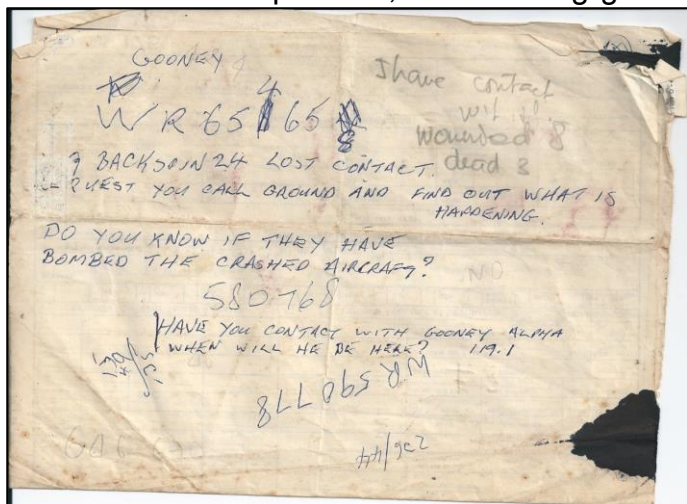 GOONEY
4
WR 65 65
8
I have contact
wounded 8
dead 3
? BACKSPIN 24 LOST CONTACT.
QUEST YOU CALL GROUND AND FIND OUT WHAT IS
HAPPENING.
DO YOU KNOW IF THEY HAVE
BOMBED THE CRASHED AIRCRAFT?
NO
580768
HAVE YOU CONTACT WITH GOONEY ALPHA
WHEN WILL HE BE HERE? 119.1
WR 590778
236/44